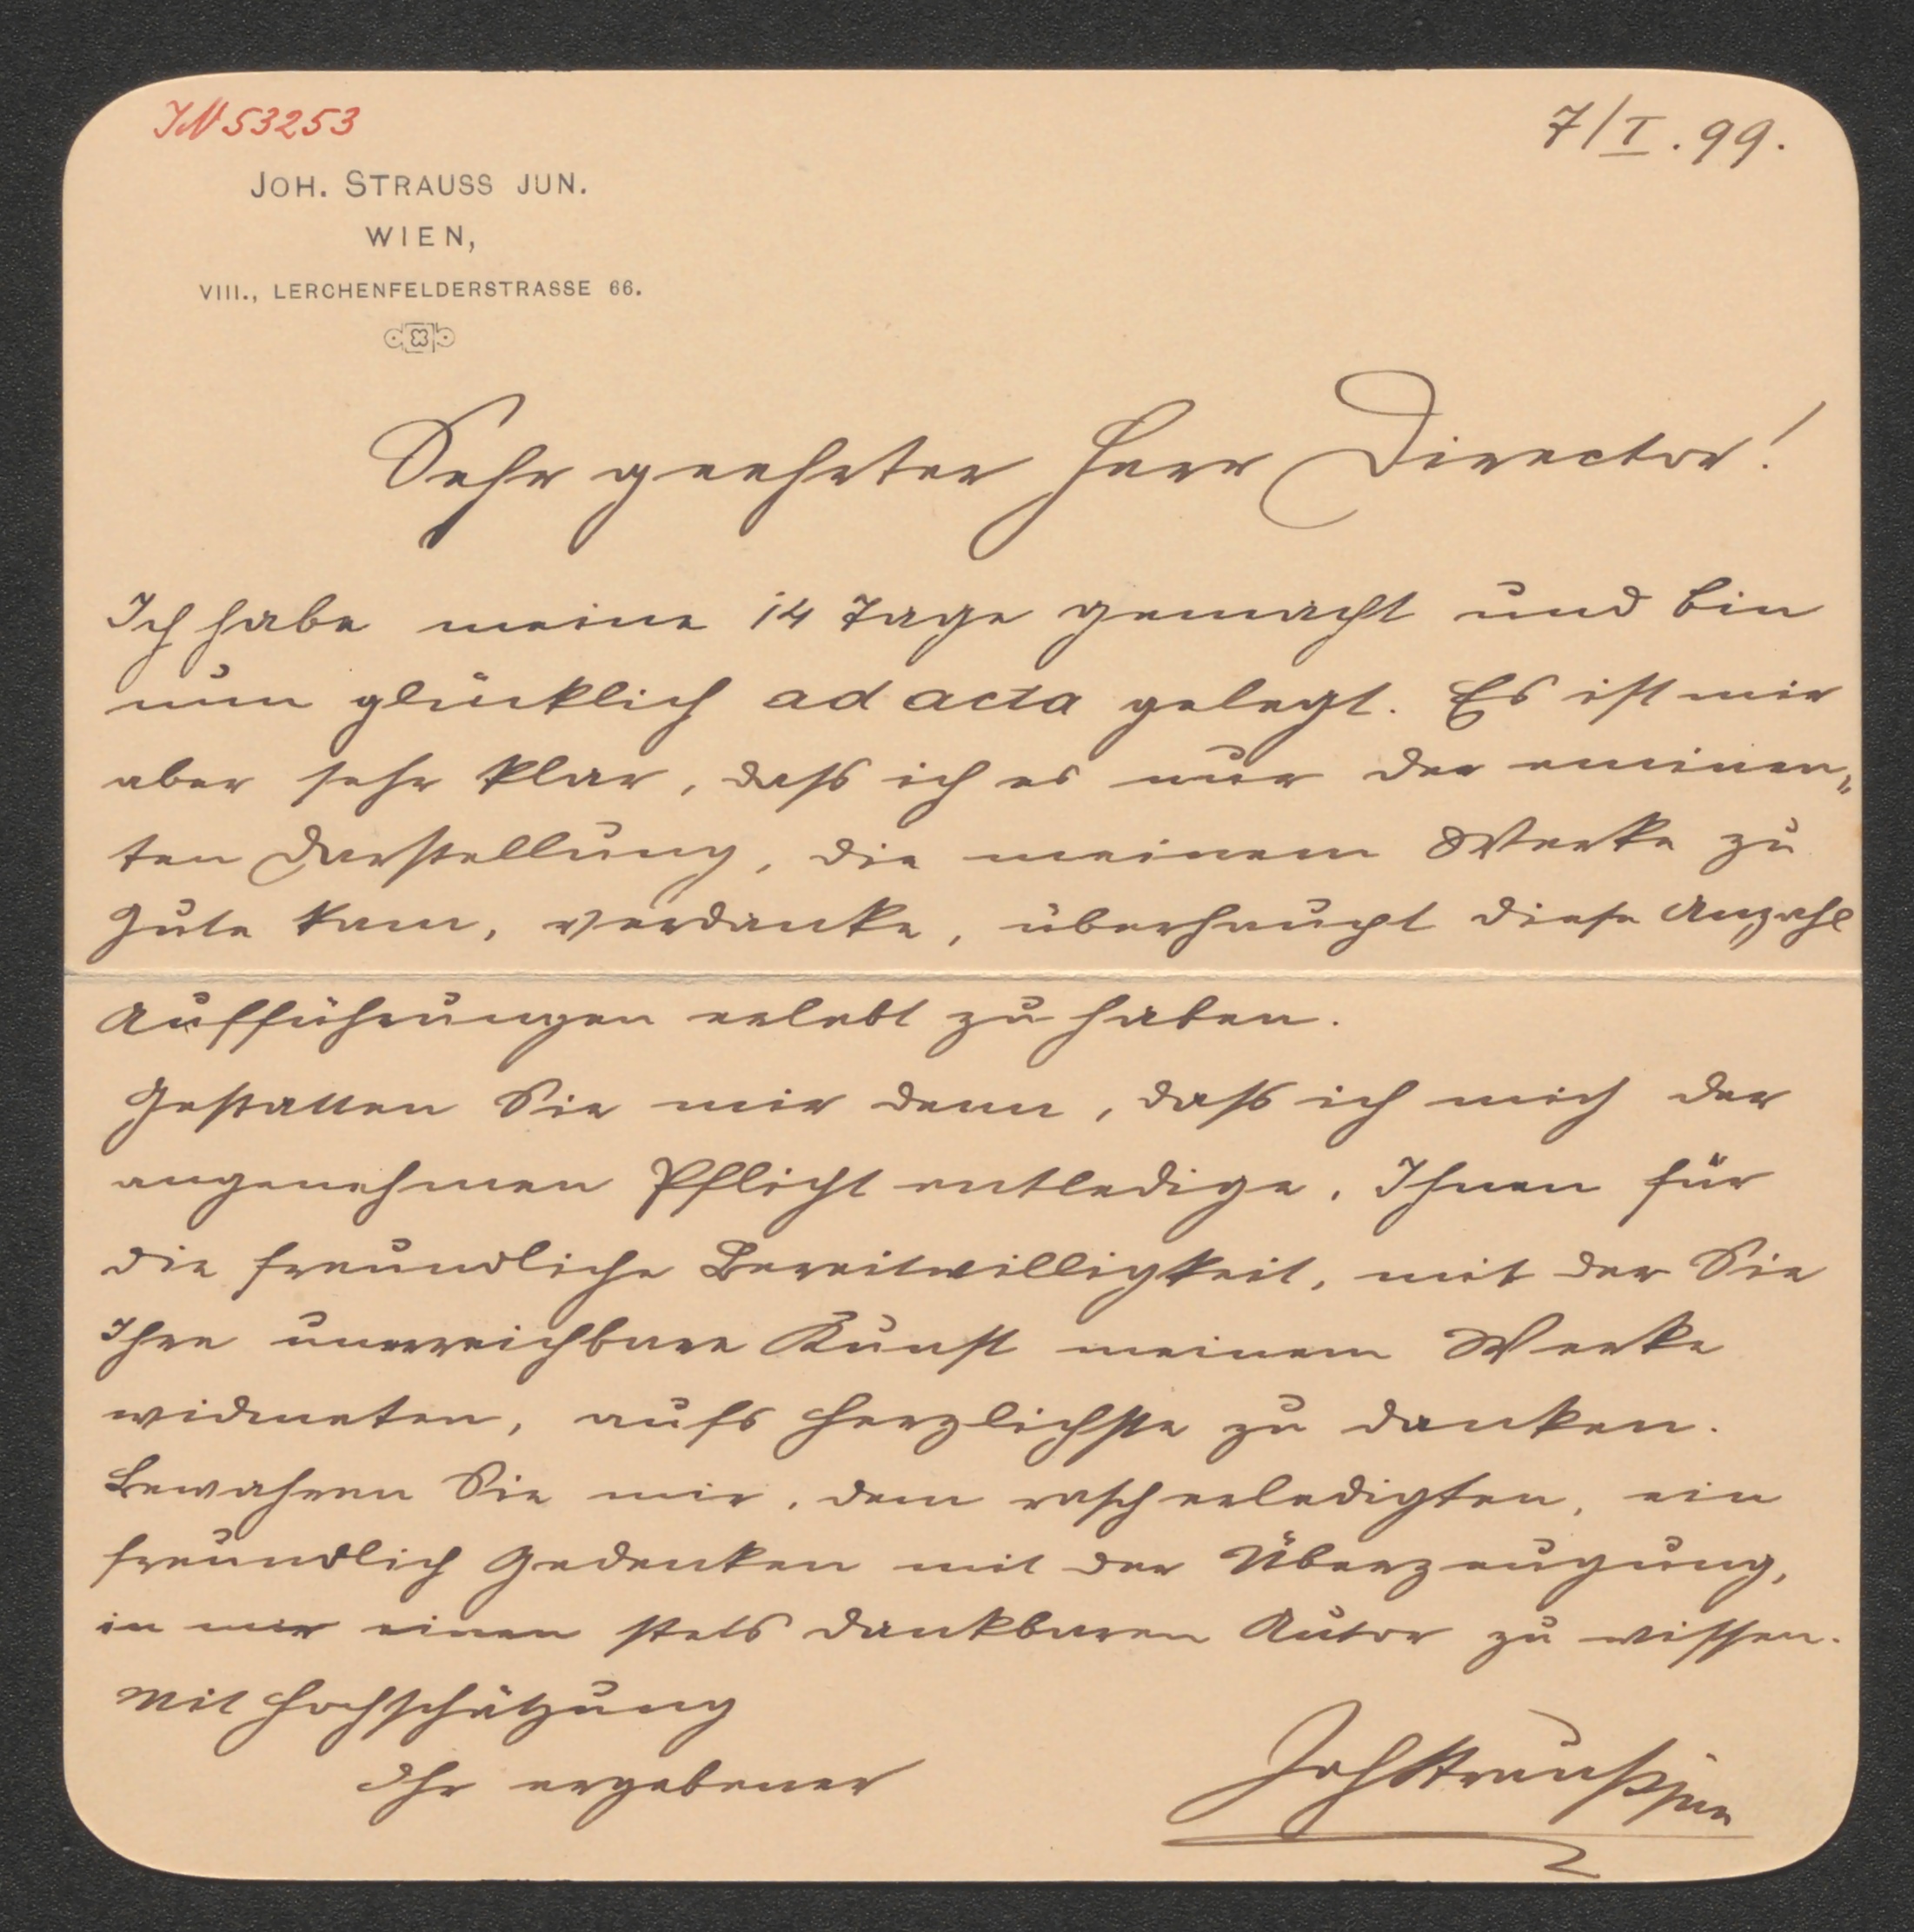 IN 53253
7/I. 99.
JOH. STRAUSS JUN.
WIEN,
VIII., LERCHENFELDERSTRASSE 66.
Sehr geehrter Herr Director!
Ich habe meine 14 Tage gemacht und bin
nun glücklich ad acta gelegt. Es ist mir
aber sehr klar, dass ich es nur der eminen„
ten Darstellung, die meinem Werke zu
Gute kam, verdanke, überhaupt diese Anzahl
Aufführungen erlebt zu haben.
Gestatten Sie mir denn, dass ich mich der
angenehmen Pflicht entledige, Ihnen für
die freundliche Bereitwilligkeit, mit der Sie
Ihre unerreichbare Kunst meinem Werke
widmeten, aufs Herzlichste zu danken.
Bewahren Sie mir, dem rasch erledigten, ein
freundlich Gedenken mit der Überzeugung,
in mir einen stets dankbaren Autor zu wissen.
Mit Hochschätzung
Ihr ergebener
Joh Strauss jun